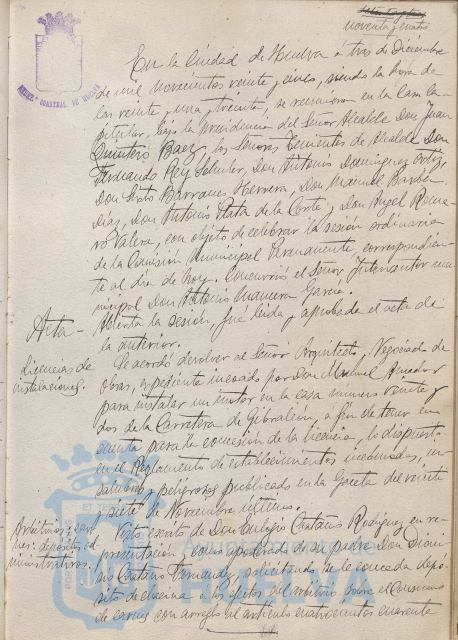 noventa y cuatro
En la Ciudad de Huelva á tres de Diciembre
de mil novecientos veinte y cinco, siendo la hora de
las veinte y una y treinta, se reunieron en la Casa Ca-
pitular, bajo la presidencia del Señor Alcalde Don Juan
Quintero Baez, los Señores Tenientes de Alcalde Don
Fernando Rey, Don Antonio Domínguez Ortiz,
Don Sixto Barranco Herrera, Don Manuel Barba
Díaz, Don Antonio Plata de la Corte y Don Angel Rome-
ro Valera, con objeto de celebrar la sesión ordinaria
de la Comisión Municipal Permanente correspondien-
te al día de hoy. Concurrió el Señor Interventor mu-
nicipal Don Antonio García.
Acta- Abierta la sesión, fué leída y aprobada el acta de
la anterior.
Licencias de
instalaciones.
Se acordó devolver al Señor Arquitecto, Negociado de
obras, expediente incoado por Don Manuel Amador
para instalar un motor en la casa número veinte y
dos de la Carretera de Gibraleón, a fin de tener en
cuenta para la concesión de la licencia, lo dispuesto
en el Reglamento de establecimientos incómodos, in-
salubres y peligrosos publicado en la Gaceta del veinte
y siete de Noviembre último.
Arbitrios; car-
nes; depósitos ad-
ministrativos.
Visto escrito de Don Eulogio Castaño Rodríguez en re-
presentación como apoderado de su padre Don Dioni-
sio Castaño Fernandez, solicitando se le conceda depó-
sito de a los efectos del arbitrio sobre el Consumo
de carnes con arreglo al artículo cuatrocientos cuarenta
HUELVA